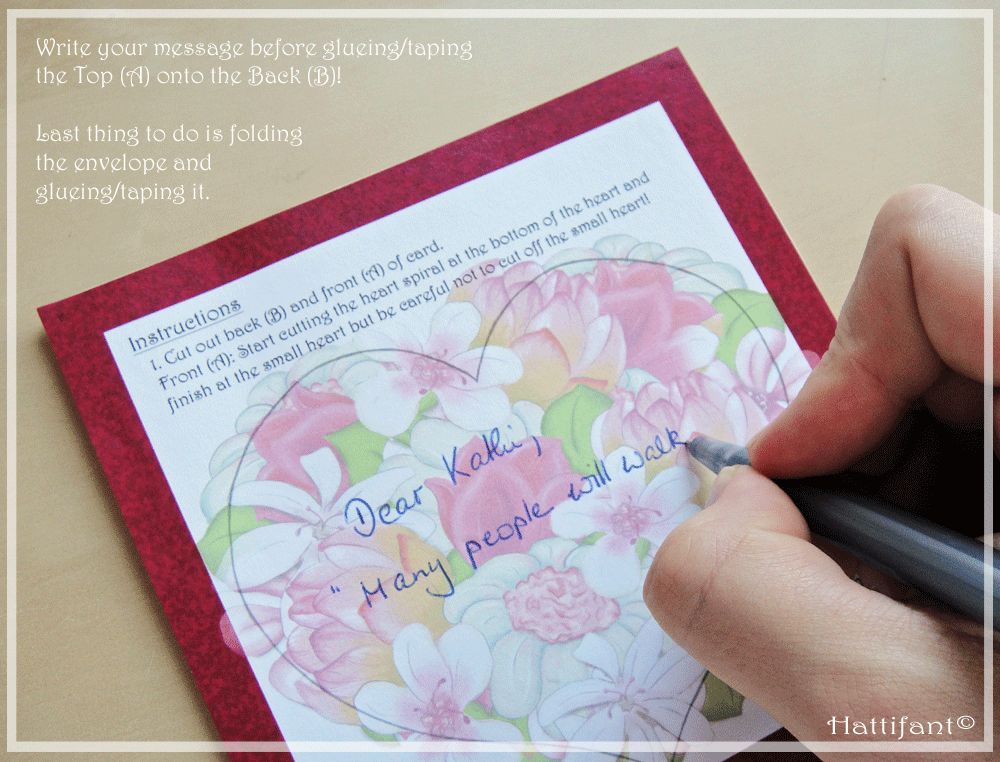 Write your message before glueing/taping
the Top (A) onto the Back (B)!
Last thing to do is folding
the envelope and
glueing/taping it.
Instructions
1. Cut out back (B) and front (A) of card.
Front (A): Start cutting the heart spiral at the bottom of the heart and
finish at the small heart but be careful not to cut off the small heart!
Dear Kathi,
"Many people will walk
Hattifant©